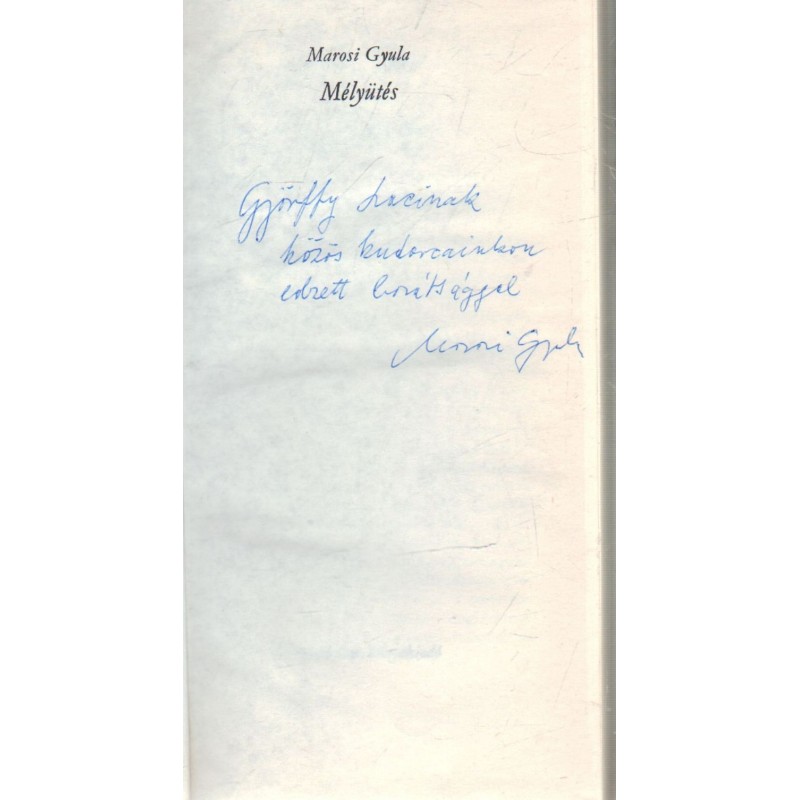 Marosi Gyula
Mélyütés
Győrffy Lacinak
közös kudarcainkon
edzett barátsággal
Marosi Gyula